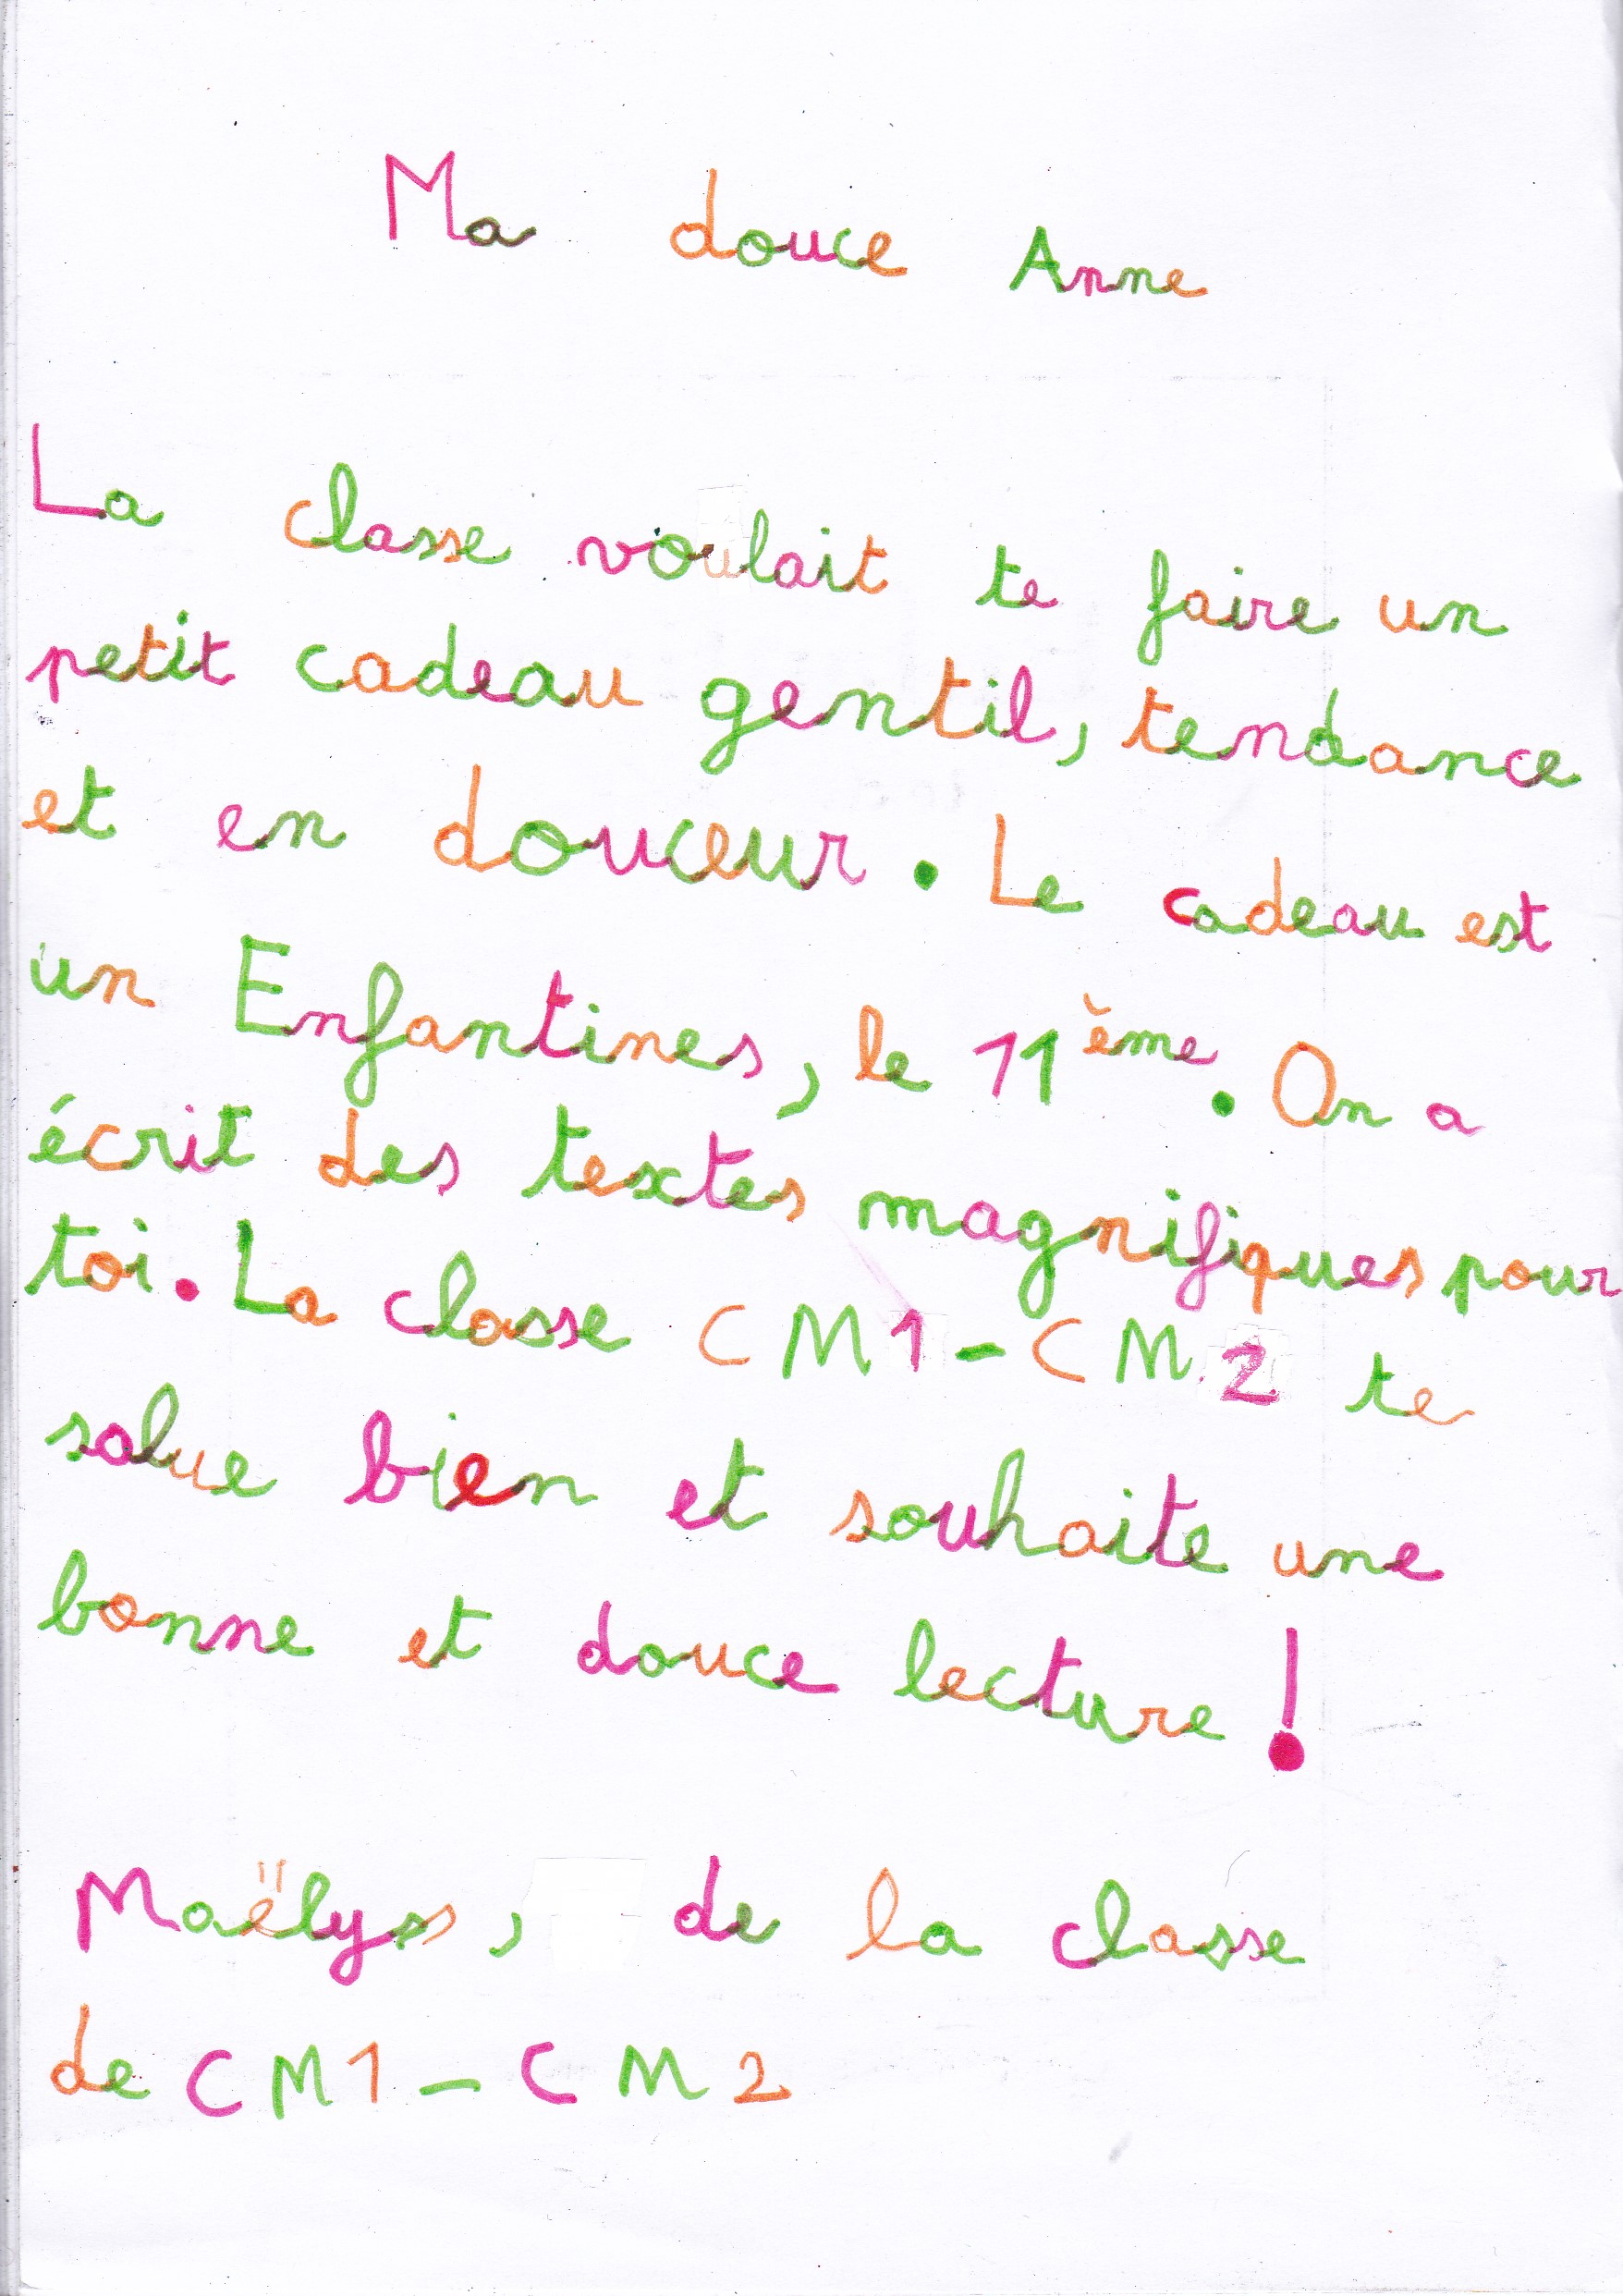 Ma douce Anne
La classe voulait te faire un
petit cadeau gentil, tendance
et en douceur. Le cadeau est
un Enfantines, le 11ème. On a
écrit des textes magnifiques pour
toi. La classe CM1-CM2 te
salue bien et souhaite une
bonne et douce lecture !
Maëlyss, de la classe
de CM1-CM2